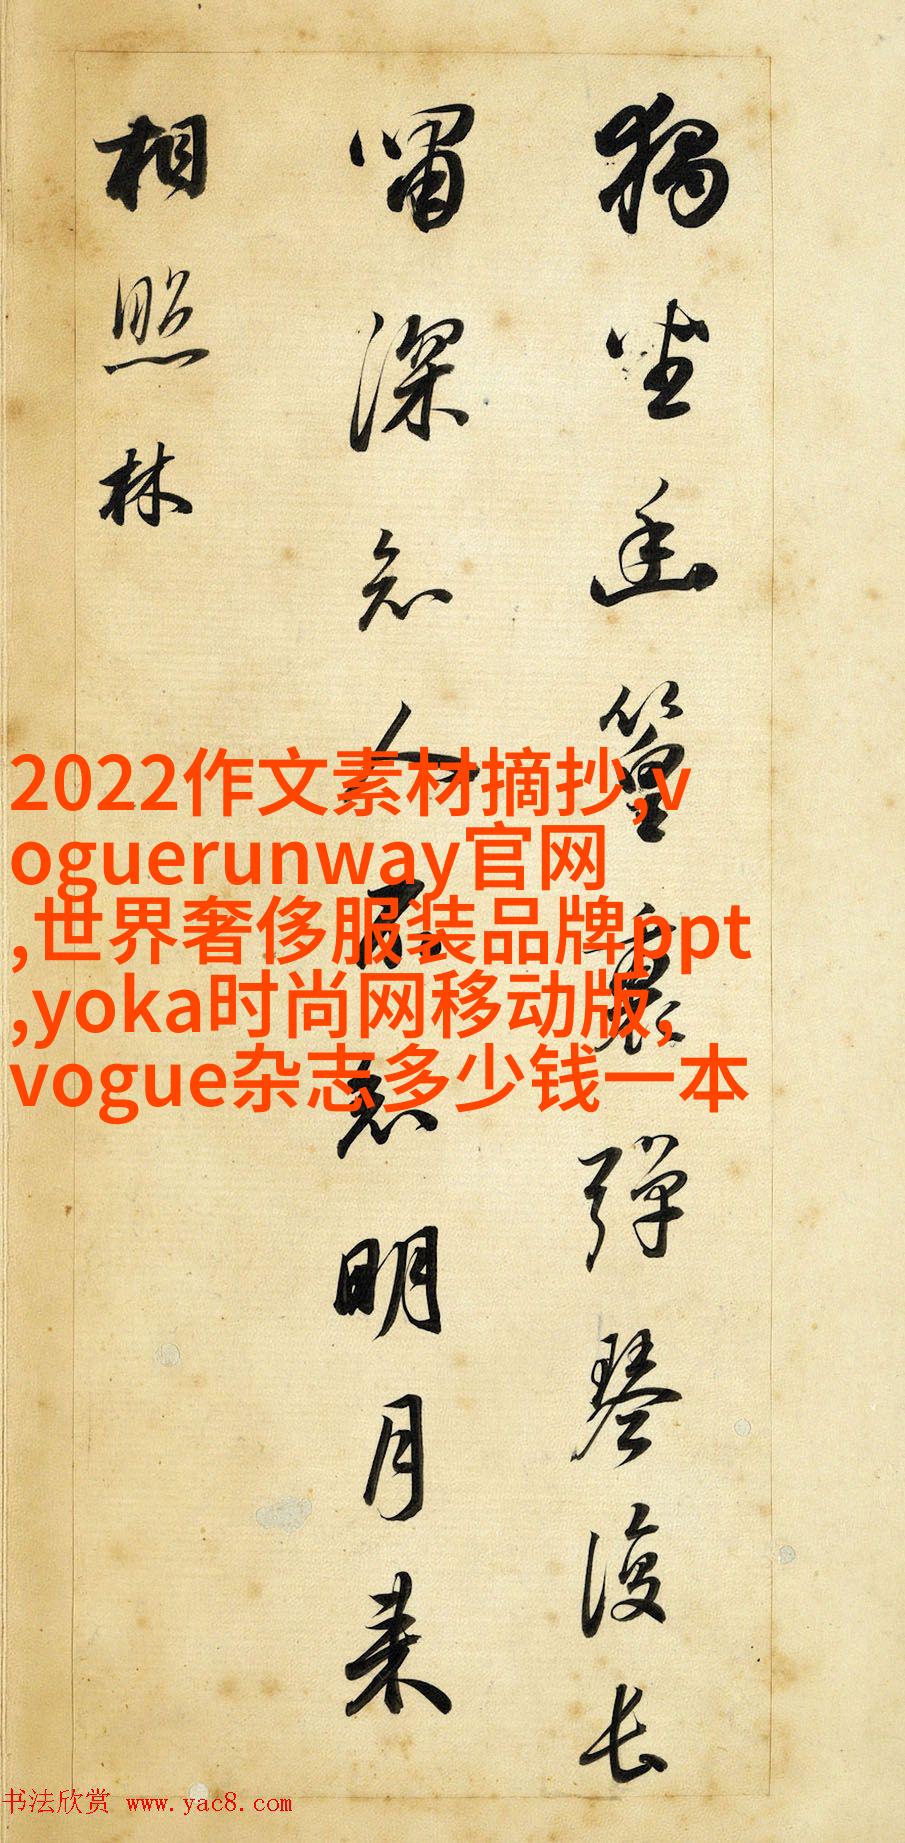 獨坐幽篁裏彈琴復長
嘯深知人不知明月来
相照林
2022作文素材摘抄,v
oguerunway官网
,世界奢侈服装品牌ppt
,yoka时尚网移动版,
vogue杂志多少钱一本
书法欣赏 www.yac8.com